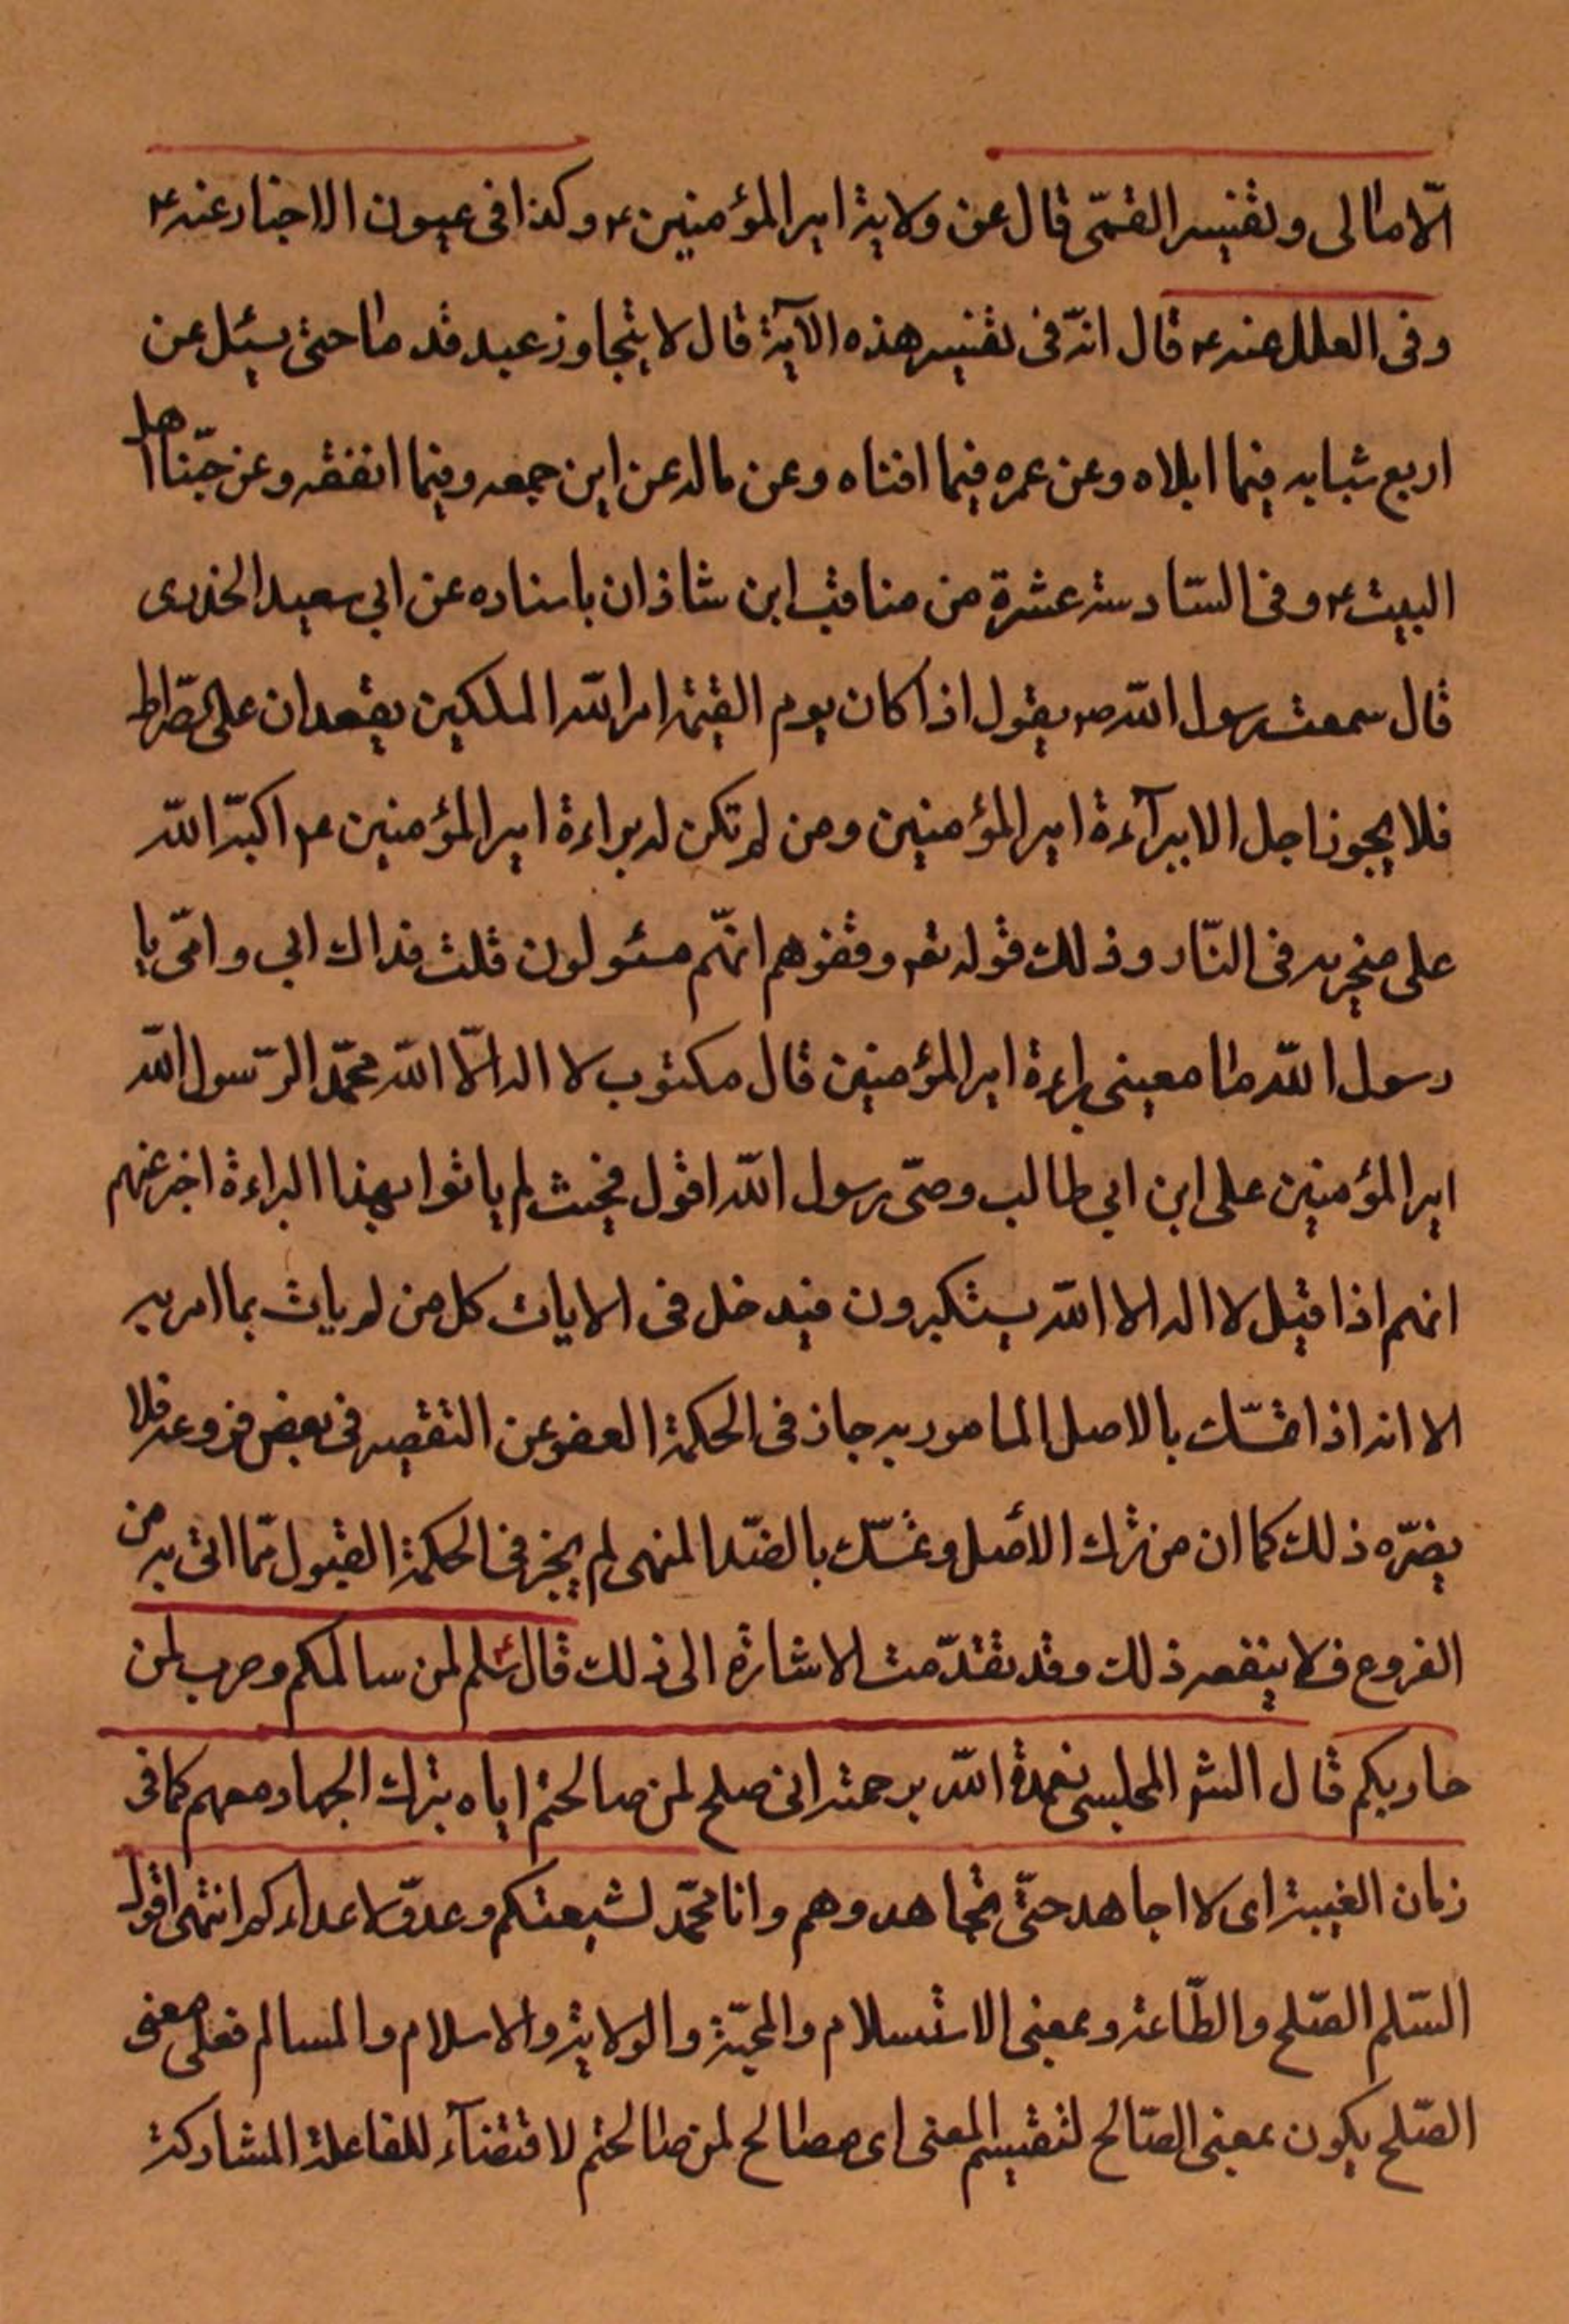 الّامالى وتفسير القمّى قال عن ولاية امير المؤمنين ع وكذا فى عيون الاخبار عنه ع
وفى العلل عنه ع قال انّه فى تفسير هذه الآية قال لا يتجاوز عبد قدماً حتى يسئل عن
اربع شبابه فيما ابلاه وعن عمره فيما افناه وعن ماله عن اين جمعه وفيما انفقه وعن حبّنا اهل
البيت ع وفى السّادسة عشرة من مناقب ابن شاذان باسناده عن ابي سعيد الخدرى
قال سمعت رسول اللّه ص يقول اذا كان يوم القيمة امر اللّه الملكين يقعدان على الصّراط
فلا يجوز احد الا ببرآءة امير المؤمنين ومن لم تكن له براءة امير المؤمنين ع اكبّه اللّه
على منخريه فى النّار وذلك قوله تع وقفوهم انّهم مسئولون قلت فداك ابي وامّى يا
رسول اللّه ما معنى براءة امير المؤمنين قال مكتوب لا اله الّا اللّه محمّد الرّسول اللّه
امير المؤمنين على ابن ابي طالب وصىّ رسول اللّه اقول فحيث لم ياتوا بهذا البراءة اخبر عنهم
انهم اذا قيل لا اله الا اللّه يستكبرون فيدخل فى الايات كل من لم يات بما امر به
الا انه اذا تمسّك بالاصل المامور به جاز فى الحكمة العفو عن التقصير فى بعض فروعه فلا
يضرّه ذلك كما ان من ترك الأصل وتمسّك بالضّد المنهى لم يجز فى الحكمة القبول ممّا اتى به من
الفروع فلا ينفعه ذلك وقد تقدّمت الاشارة الى ذلك قال ع سلم لمن سالمكم وحرب لمن
حاربكم قال الشو المجلسى تغمدة اللّه برحمته انى صلح لمن صالحتم اياه بترك الجهاد معهم كما فى
زمان الغيبة اى لا اجاهد حتّى تجاهدوهم وانا محمّد لشيعتكم وعدوّ لاعدائكم انتهى اقول
السّلم الصّلح والطّاعة وبمعنى الاستسلام والمحبّة والولاية والاسلام والمسالم فعلى معنى
الصّلح يكون بمعنى الصّالح لتفسير المعنى اى مصالح لمن صالحتم لاقتضآء للفاعلة المشاركة